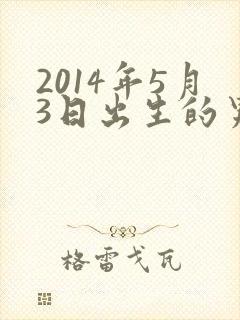 2014年5月
3日出生的
格雷戈瓦